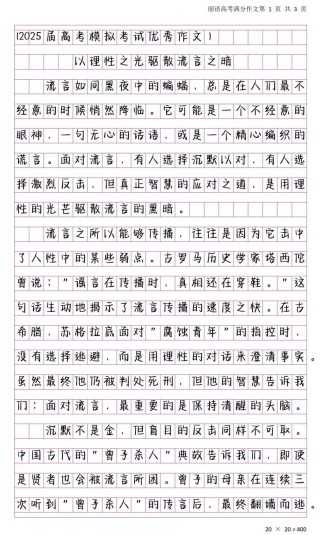 丽语高考满分作文第 1 页 共 3 页
(2025届高考模拟考试优秀作文)
以理性之光驱散流言之暗
流言如同黑夜中的蝙蝠，总是在人们最不
经意的时候悄然降临。它可能是一个不经意的
眼神，一句无心的话语，或是一个精心编织的
谎言。面对流言，有人选择沉默以对，有人选
择激烈反击，但真正智慧的应对之道，是用理
性的光芒驱散流言的黑暗。
流言之所以能够传播，往往是因为它击中
了人性中的某些弱点。古罗马历史学家塔西佗
曾说："谣言在传播时，真相还在穿鞋。"这
句话生动地揭示了流言传播的速度之快。在古
希腊，苏格拉底面对"腐蚀青年"的指控时，
没有选择逃避，而是用理性的对话来澄清事实。
虽然最终他仍被判处死刑，但他的智慧告诉我
们：面对流言，最重要的是保持清醒的头脑。
沉默不是金，但盲目的反击同样不可取。
中国古代的"曾子杀人"典故告诉我们，即使
是贤者也会被流言所困。曾子的母亲在连续三
次听到"曾子杀人"的传言后，最终翻墙而逃。
20 × 20 = 400